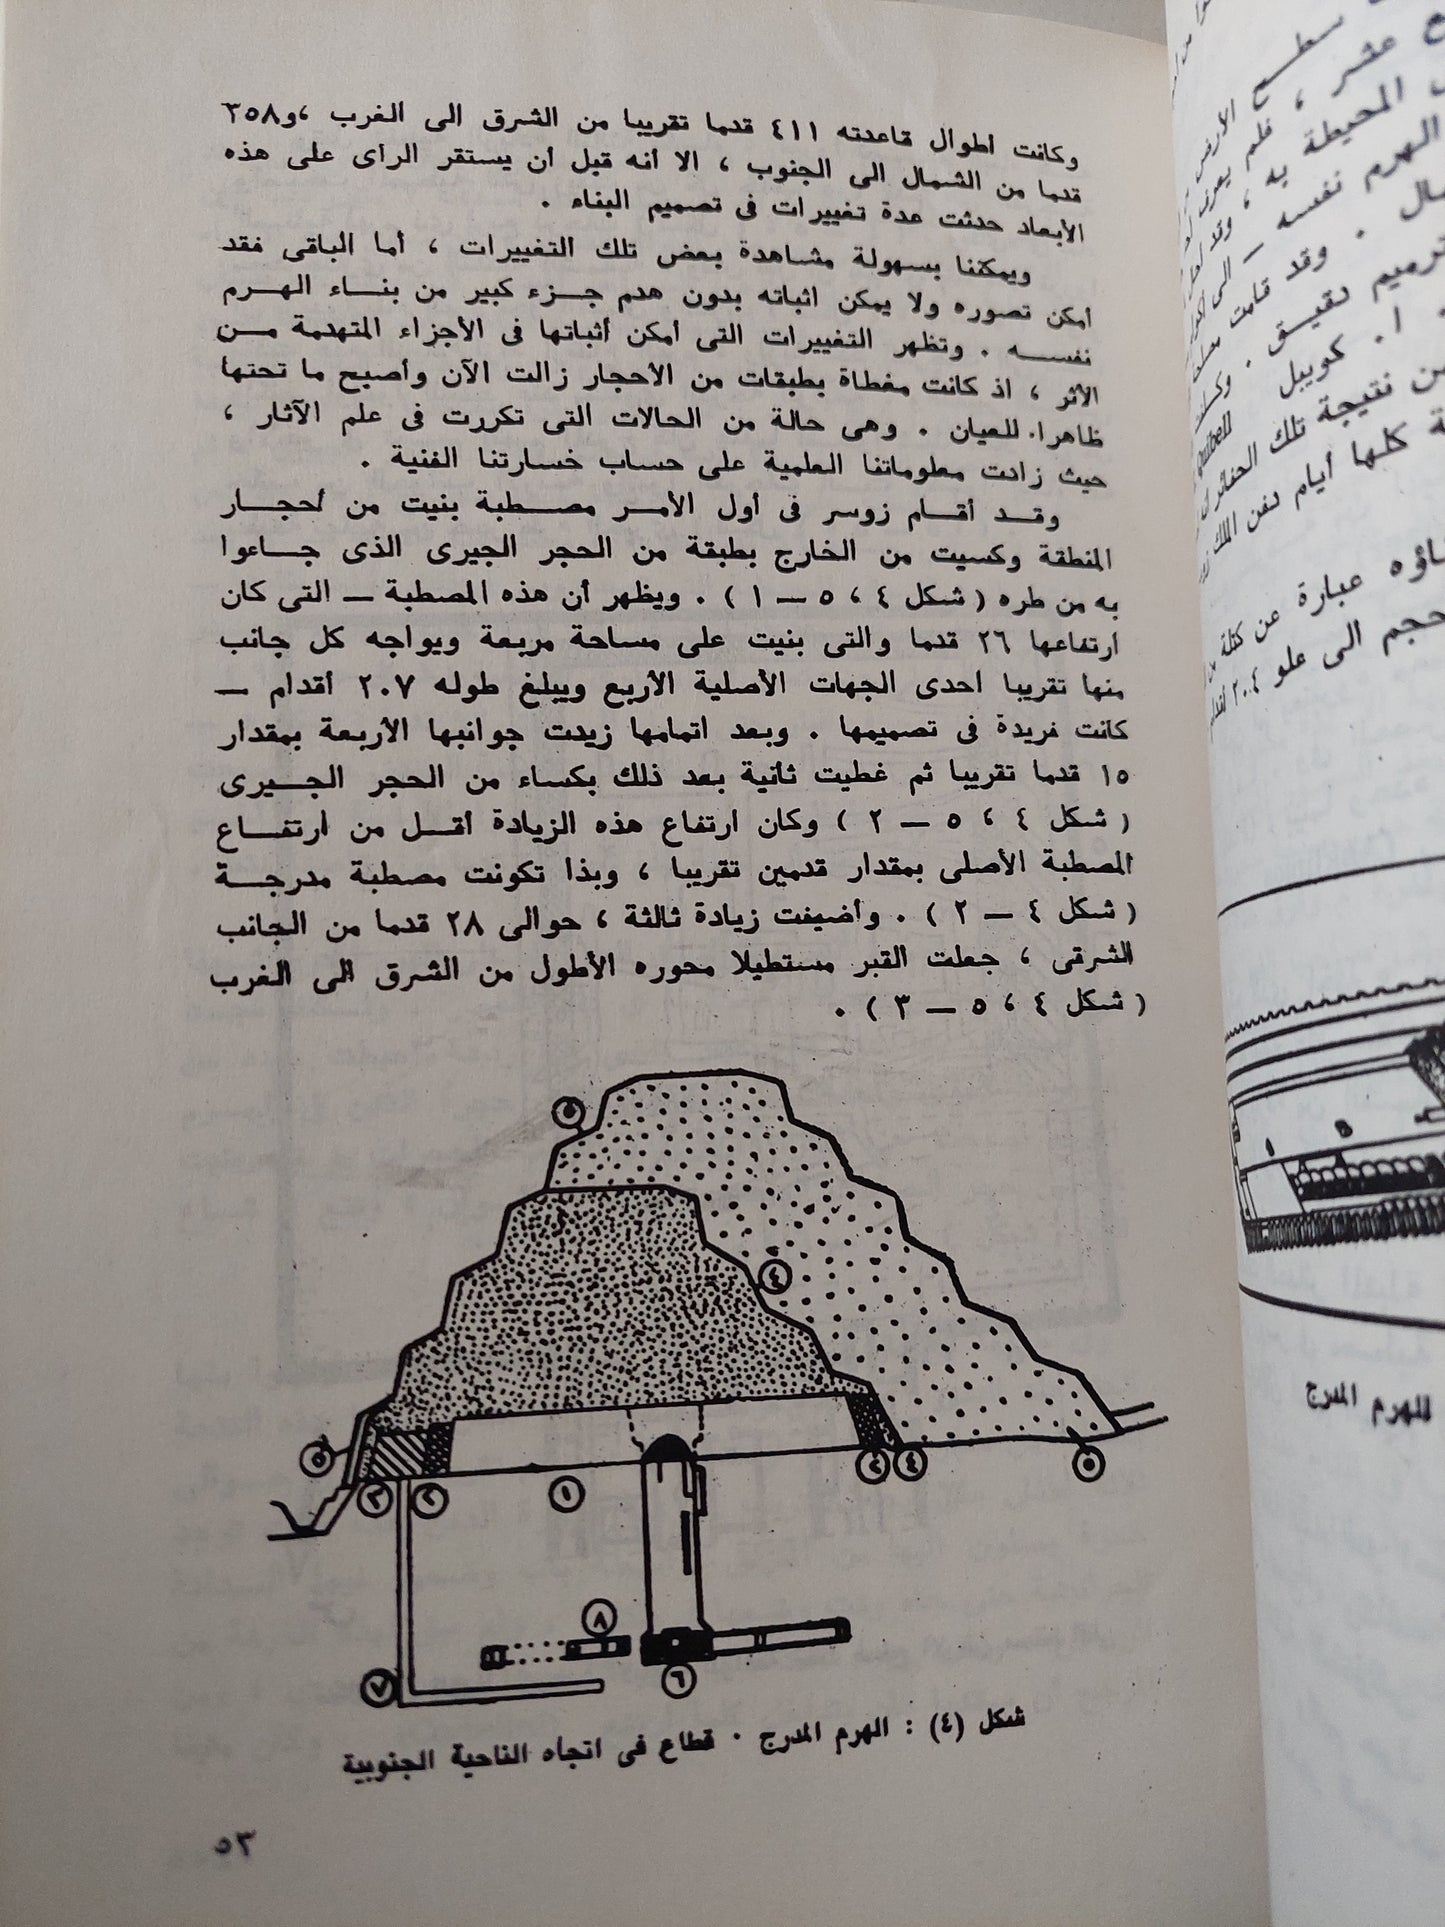 وكانت أطوال قاعدته ٤١١ قدما تقريبا من الشرق الى الغرب ،و٣٥٨
قدما من الشمال الى الجنوب ، الا أنه قبل أن يستقر الرأى على هذه
الأبعاد حدثت عدة تغييرات فى تصميم البناء .
ويمكننا بسهولة مشاهدة بعض تلك التغييرات ، أما الباقى فقد
أمكن تصوره ولا يمكن اثباته بدون هدم جزء كبير من بناء الهرم
نفسه . وتظهر التغييرات التى أمكن أثباتها فى الأجزاء المتهدمة من
الأثر ، اذ كانت مغطاة بطبقات من الأحجار زالت الآن وأصبح ما تحتها
ظاهرا. للعيان . وهى حالة من الحالات التى تكررت فى علم الآثار ،
حيث زادت معلوماتنا العلمية على حساب خسارتنا الفنية .
وقد أقام زوسر فى أول الأمر مصطبة بنيت من أحجار
المنطقة وكسيت من الخارج بطبقة من الحجر الجيرى الذى جاءوا
به من طره ( شكل ٤ ، ٥ — ١ ) . ويظهر أن هذه المصطبة — التى كان
ارتفاعها ٢٦ قدما والتى بنيت على مساحة مربعة ويواجه كل جانب
منها تقريبا احدى الجهات الأصلية الأربع ويبلغ طوله ٢٠٧ أقدام —
كانت فريدة فى تصميمها . وبعد اتمامها زيدت جوانبها الأربعة بمقدار
١٥ قدما تقريبا ثم غطيت ثانية بعد ذلك بكساء من الحجر الجيرى
( شكل ٤ ، ٥ — ٢ ) وكان ارتفاع هذه الزيادة أقل من ارتفاع
المصطبة الأصلى بمقدار قدمين تقريبا ، وبذا تكونت مصطبة مدرجة
( شكل ٤ — ٢ ) . وأضيفت زيادة ثالثة ، حوالى ٢٨ قدما من الجانب
الشرقى ، جعلت القبر مستطيلا محوره الأطول من الشرق الى الغرب
( شكل ٤ ، ٥ — ٣ ) .
٥
٤
٥
٣
٢
١
٢
٤
٥
٨
٧
٦
شكل (٤) : الهرم المدرج . قطاع فى اتجاه الناحية الجنوبية
٥٣
سطح الأرض
عشر ، فلم يعرف
المحيطة به ، وقد
الهرم نفسه — الى
وقد قامت
ترميم دقيق .
ا. كويبل
Quibell
من نتيجة تلك الحفائر
كلها أيام دفن الملك
عبارة عن كتلة
حجم الى علو ٢٠٤
B
للهرم المدرج